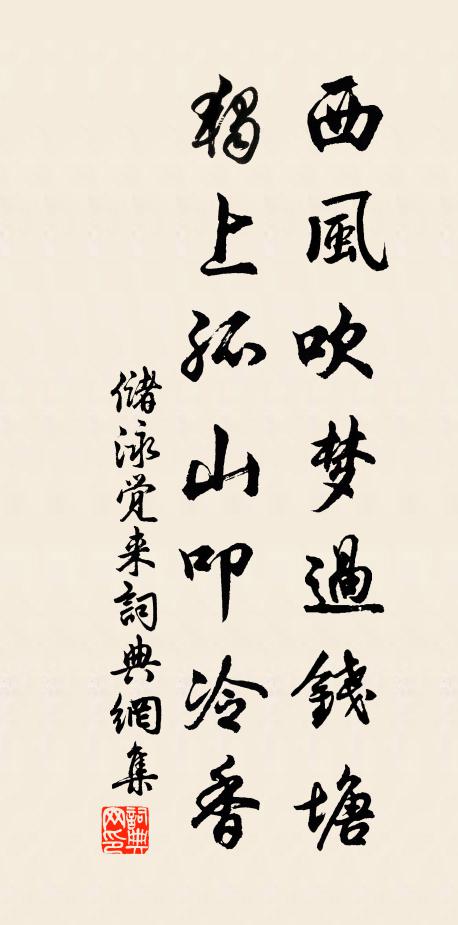 西風吹梦過錢塘
獨上孤山叩冷香
儲泳觉来詞典網集
詞典
网印